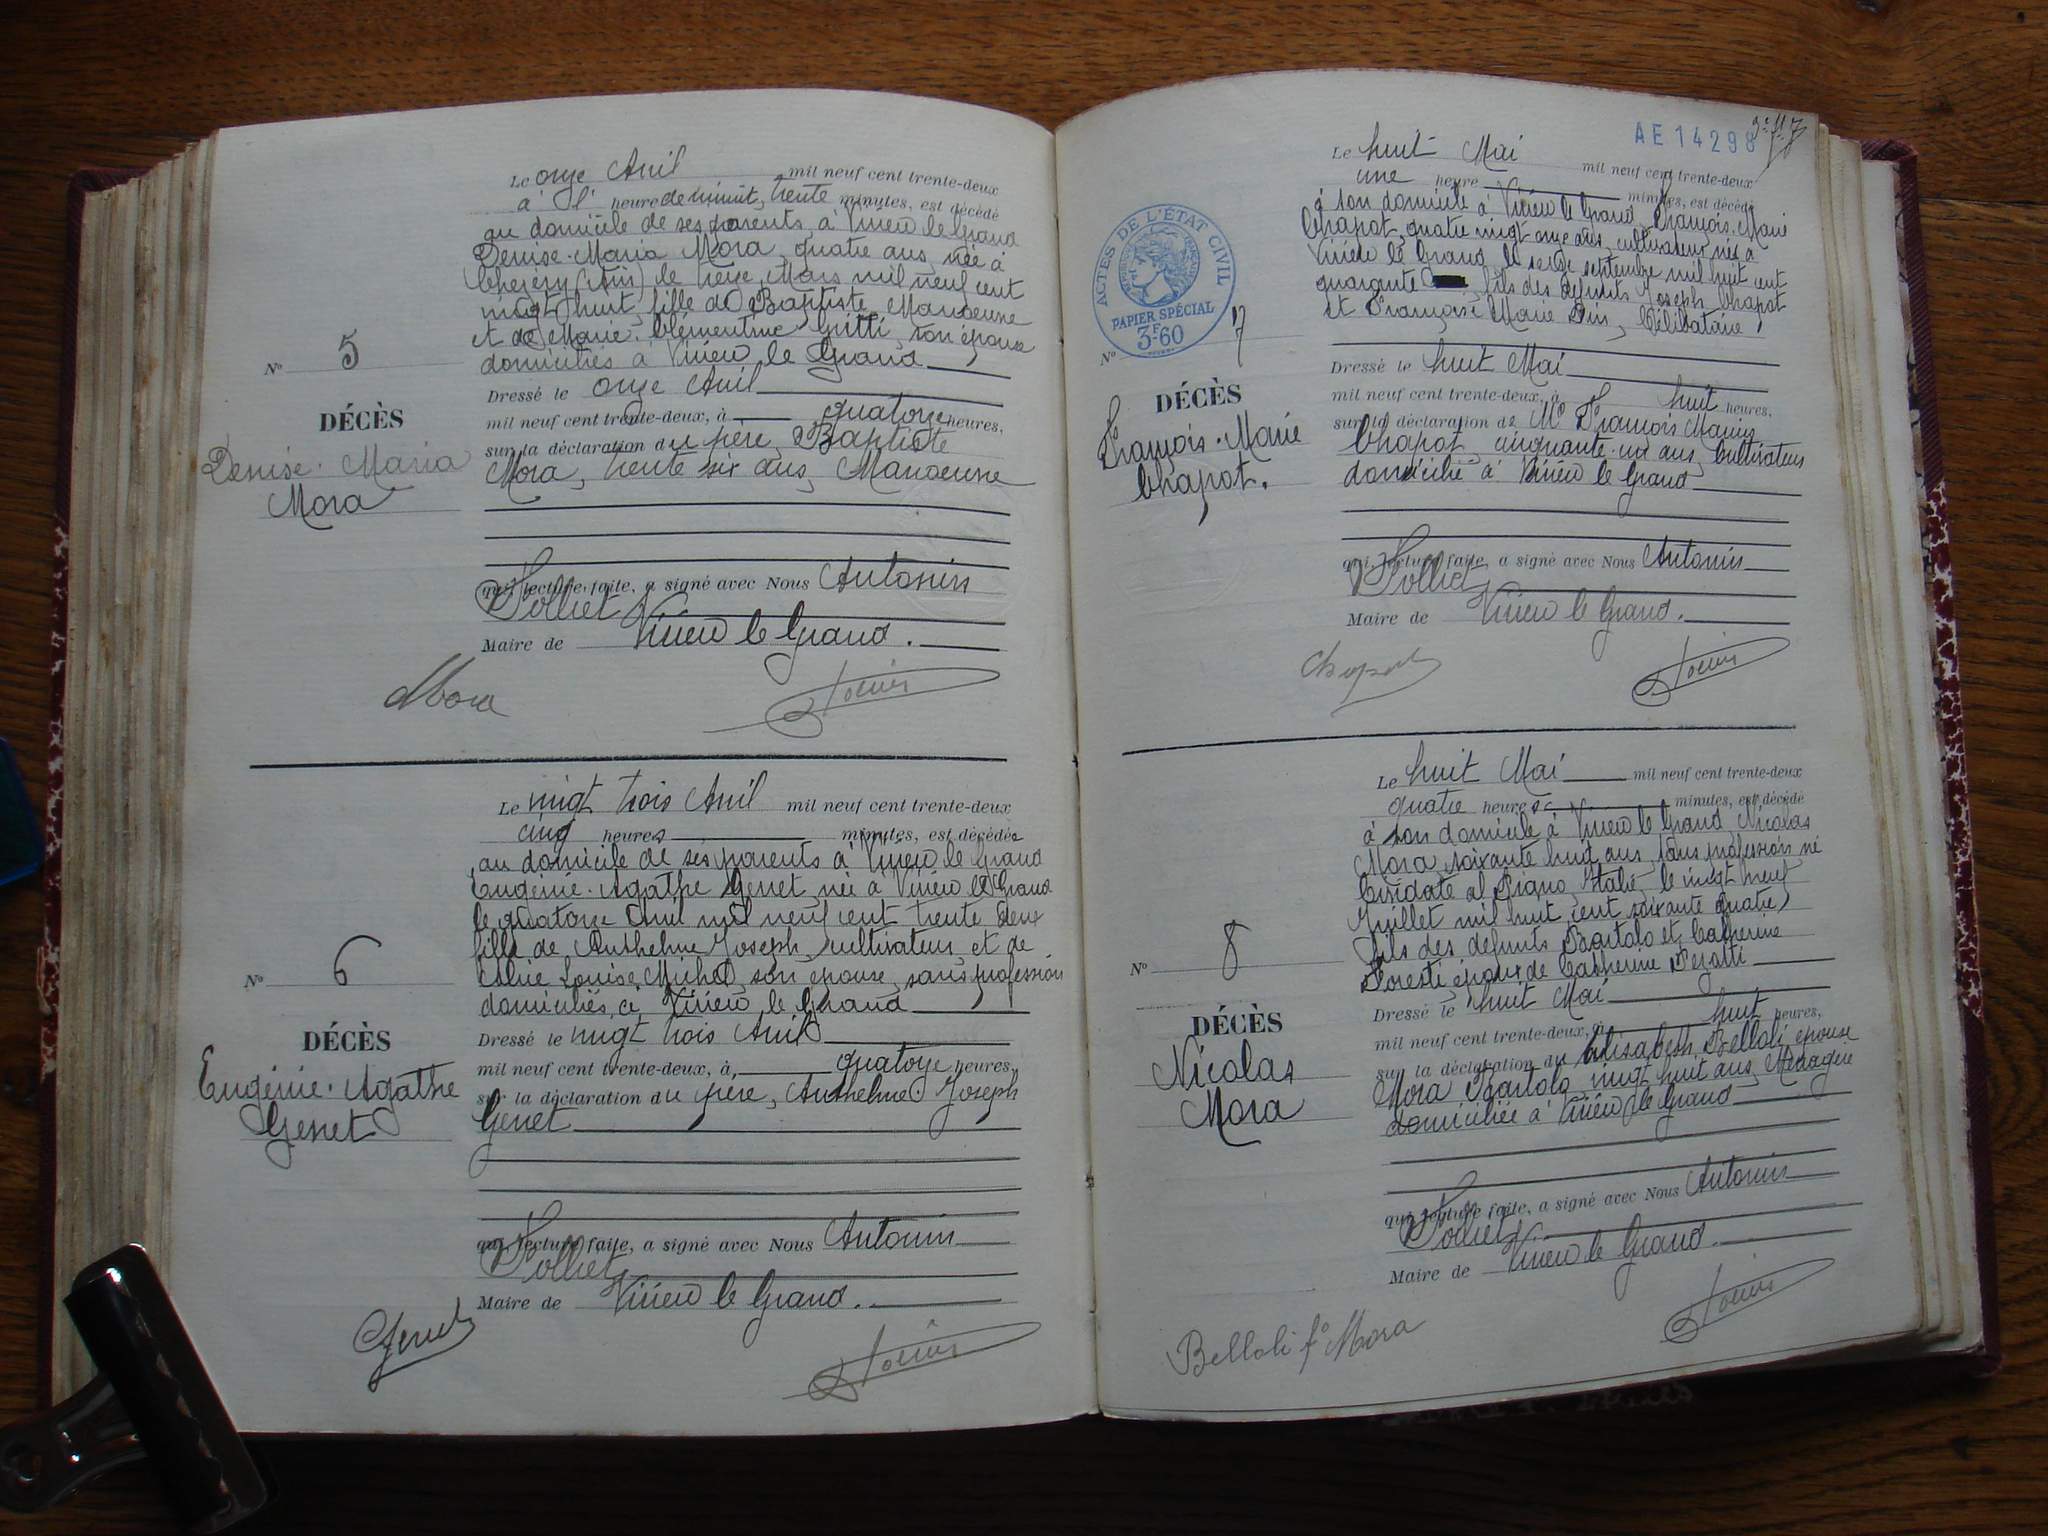 Le onze Avril mil neuf cent trente-deux
à l' heure de minuit, trente minutes, est décédé
au domicile de ses parents, à Virieu le Grand
Denise-Maria Mora, quatre ans, née à
Chézery (Ain) le treize Mars mil neuf cent
vingt huit, fille de Baptiste, Manoeuvre
et de Marie-Clémentine Gritti, son épouse
domiciliés à Virieu le Grand
N° 5
DÉCÈS
Denise-Maria
Mora
Dressé le onze Avril
mil neuf cent trente-deux, à quatorze heures,
sur la déclaration du père, Baptiste
Mora, trente six ans, Manoeuvre
qui, lecture faite, a signé avec Nous Antonin
Tolliet
Maire de Virieu le Grand.
Mora
Le vingt trois Avril mil neuf cent trente-deux
cinq heures minutes, est décédée
au domicile de ses parents à Virieu le Grand
Eugénie-Agathe Genet née à Virieu le Grand
le quatorze Avril mil neuf cent trente deux
fille de Anthelme Joseph, cultivateur et de
Louise Michel, son épouse, sans profession
domiciliés à Virieu le Grand
N° 6
DÉCÈS
Eugénie-Agathe
Genet
Dressé le vingt trois Avril
mil neuf cent trente-deux, à quatorze heures,
sur la déclaration du père, Anthelme Joseph
Genet
qui, lecture faite, a signé avec Nous Antonin
Tolliet
Maire de Virieu le Grand.
Genet
AE 14298
Le huit Mai mil neuf cent trente-deux
une heure minutes, est décédé
à son domicile à Virieu le Grand, François-Marie
Chapot, quatre vingt onze ans, cultivateur né à
Virieu le Grand, le seize septembre mil huit cent
quarante fils des défunts Joseph Chapot
et Françoise Marie Célibataire
ACTES DE L'ÉTAT CIVIL
PAPIER SPÉCIAL
3F60
N° 7
DÉCÈS
François-Marie
Chapot.
Dressé le huit Mai
mil neuf cent trente-deux, à huit heures,
sur la déclaration de Mr François Marius
Chapot, cinquante-un ans, Cultivateur
domicilié à Virieu le Grand
qui, lecture faite, a signé avec Nous Antonin
Tolliet
Maire de Virieu le Grand.
Chapot
Le huit Mai mil neuf cent trente-deux
quatre heures minutes, est décédé
à son domicile à Virieu le Grand, Nicolas
Mora, soixante huit ans, sans profession né
Cividate al Piano, Italie, le vingt neuf
Juillet mil huit cent soixante quatre,
fils des défunts Bartolo et Catherine
Foresti, époux de Catherine Pezotti
N° 8
DÉCÈS
Nicolas
Mora
Dressé le huit Mai
mil neuf cent trente-deux, à huit heures,
sur la déclaration du Elisabeth Belloli, épouse
Mora Bartolo, vingt huit ans, Ménagère
domiciliée à Virieu le Grand
qui, lecture faite, a signé avec Nous Antonin
Tolliet
Maire de Virieu le Grand.
Belloli fe Mora